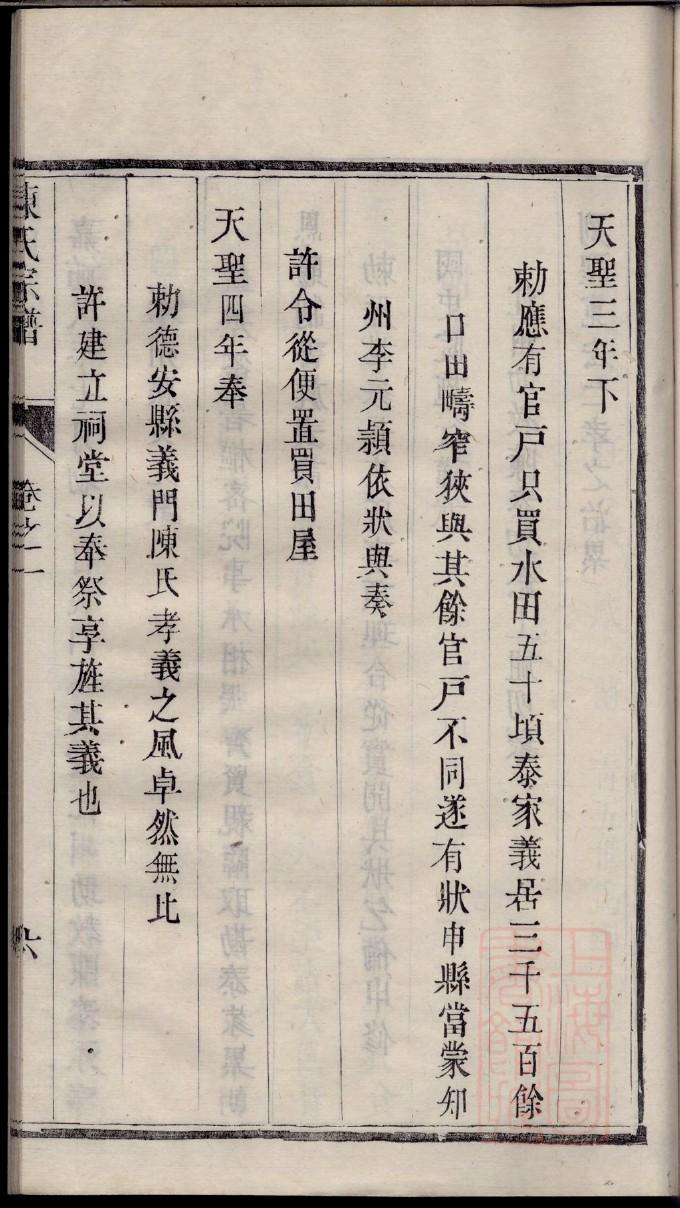 天聖三年下
勅應有官戸只買水田五十頃泰家義居三千五百餘
口田疇窄狹與其餘官戸不同遂有狀申縣當蒙知
州李元頴依狀與奏
許令從便置買田屋
天聖四年奉
勅德安縣義門陳氏孝義之風卓然無比
許建立祠堂以奉祭享旌其義也
陳氏宗譜
卷之一
六